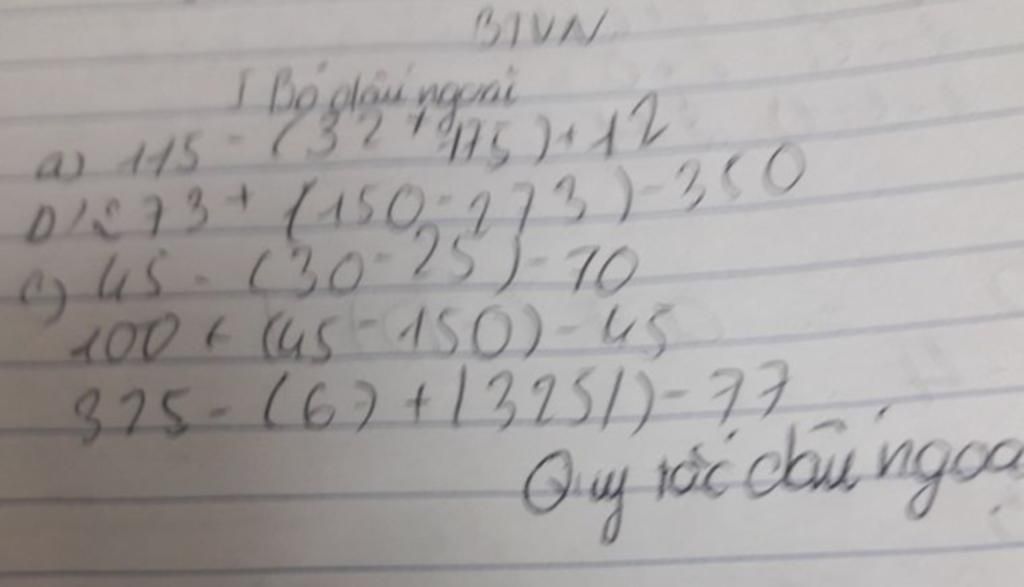 BTVN
I Bỏ dấu ngoài
a) 115 - (32 + 115) + 12
b) 273 + (150 - 273) - 350
c) 45 - (30 - 25) - 70
100 + (45 - 150) - 45
325 - (67 + |325|) - 77
Quy tắc dấu ngoa